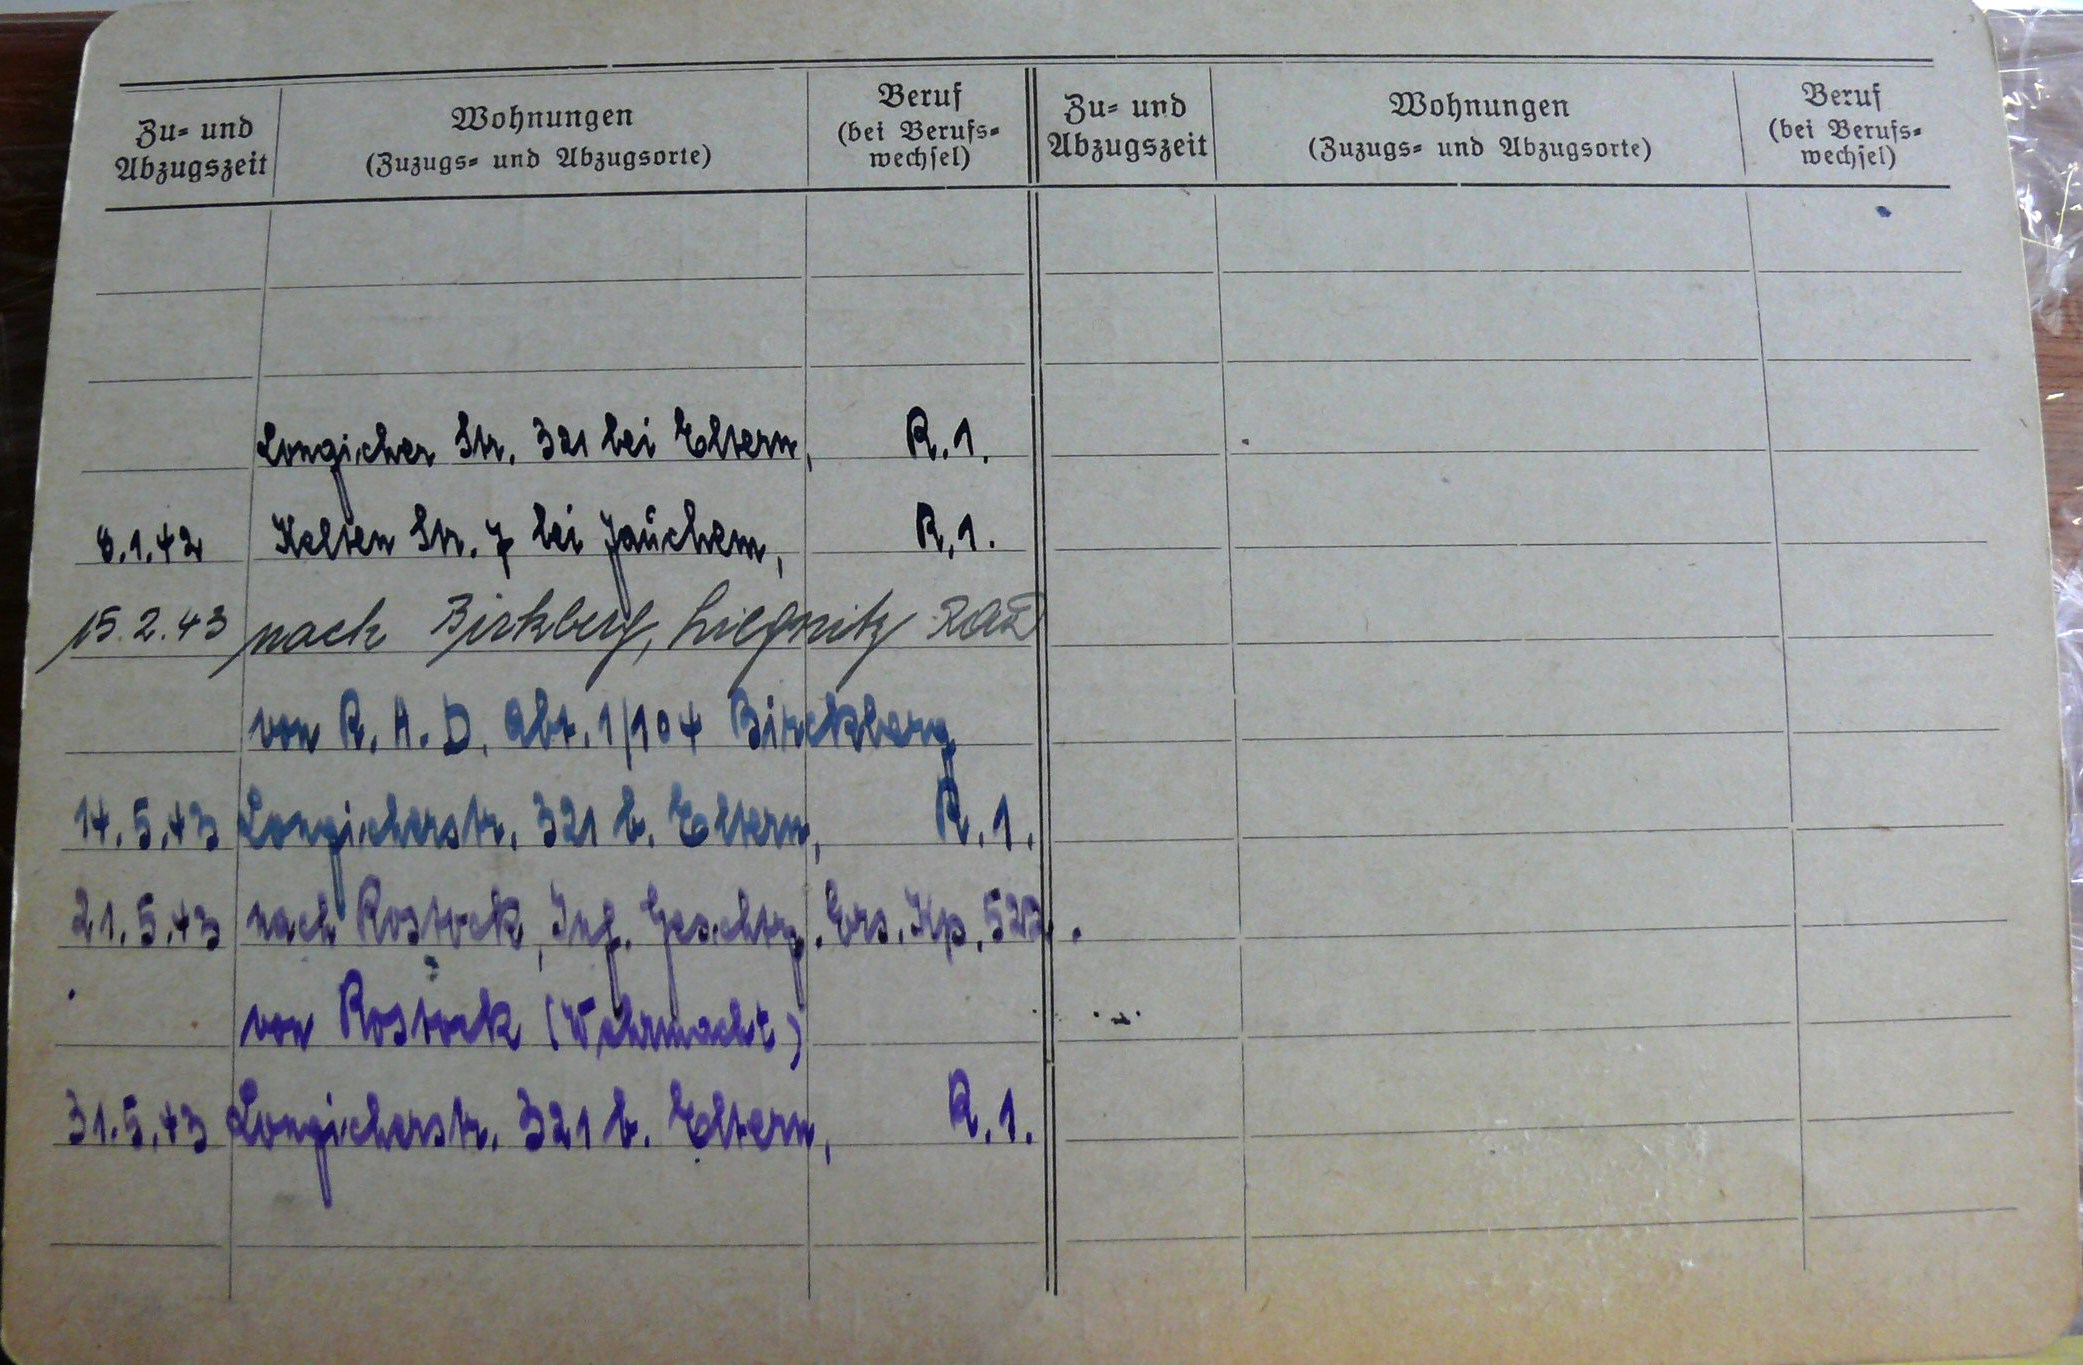 Zu- und Abzugszeit
Wohnungen
(Zuzugs- und Abzugsorte)
Beruf
(bei Berufs-
wechsel)
Zu- und Abzugszeit
Wohnungen
(Zuzugs- und Abzugsorte)
Beruf
(bei Berufs-
wechsel)
Longicher Str. 321 bei Eltern, R.1.
8.1.42 Kelten Str. 7 bei Jauchem, R.1.
15.2.43 nach Birkberg, Liegnitz
von R.A.D. Abt. 1/104 Birckberg
14.5.43 Longicherstr. 321 b. Eltern, R.1.
21.5.43 nach Rostock, Inf. Geschtz. Ers. Kp.
von Rostock (Wehrmacht)
31.5.43 Longicherstr. 321 b. Eltern, R.1.